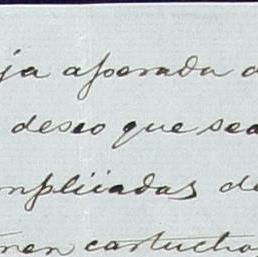 ja aperada
deseo que sea
mpliiadas de
nen cartucho